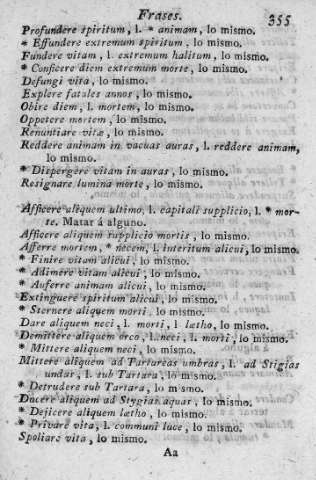 Frases. 355
Profundere spiritum, l. * animam, lo mismo.
* Effundere extremum spiritum, lo mismo.
Fundere vitam, l. extremum halitum, lo mismo.
* Conficere diem extremum morte, lo mismo.
Defungi vita, lo mismo.
Explere fatales annos, lo mismo.
Obire diem, l. mortem, lo mismo.
Oppetere mortem, lo mismo.
Renuntiare vitæ, lo mismo.
Reddere animam in vacuas auras, l. reddere animam,
lo mismo.
* Dispergere vitam in auras, lo mismo.
Resignare lumina morte, lo mismo.
Afficere aliquem ultimo, l. capitali supplicio, l. * mor-
te. Matar á alguno.
Afficere aliquem supplicio mortis, lo mismo.
Afferre mortem, * necem, l. interitum alicui, lo mismo.
* Finire vitam alicui, lo mismo.
* Adimere vitam alicui, lo mismo.
* Auferre animam alicui, lo mismo.
Extinguere spiritum alicui, lo mismo.
* Sternere aliquem morti, lo mismo.
Dare aliquem neci, l. morti, l lætho, lo mismo.
Demittere aliquem orco, l. neci, l. morti, lo mismo.
* Mittere aliquem neci, lo mismo.
Mittere aliquem ad Tartareas umbras, l. ad Stigias
undas, l. sub Tartara, lo mismo.
* Detrudere sub Tartara, lo mismo.
Ducere aliquem ad Stygias aquas, lo mismo.
* Dejicere aliquem lætho, lo mismo.
* Privare vita, l. communi luce, lo mismo.
Spoliare vita, lo mismo.
Aa